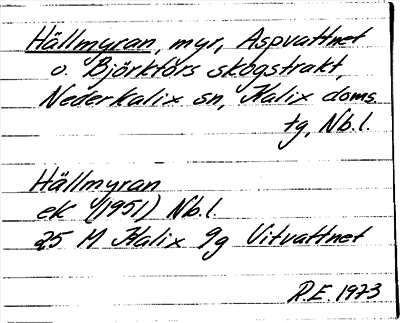 Hällmyran, myr, Aspvattnet
o. Björkfors skogstrakt,
Nederkalix sn, Kalix doms.
tg, Nb.l.
Hällmyran
ek (1951) Nb.l.
25 M Kalix 9g Vitvattnet
R.E. 1973